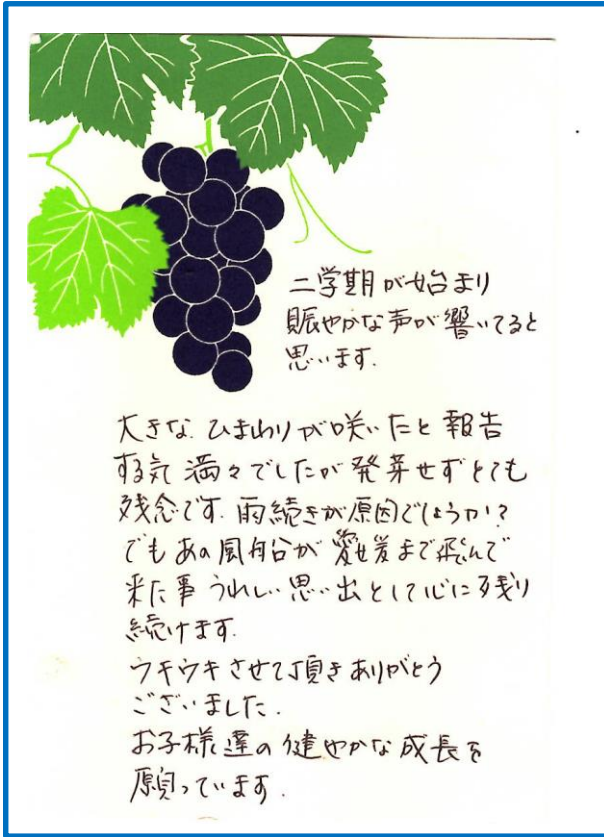 二学期が始まり
賑やかな声が響いてると
思います.
大きな ひまわりが咲いたと 報告
する気 満々でしたが 発芽せずとても
残念です. 雨続きが原因でしょうか?
でも あの風船が 愛媛まで飛んで
来た事 うれしい思い出として心に残り
続けます.
ウキウキさせて頂き ありがとう
ございました.
お子様達の健やかな成長を
願っています.